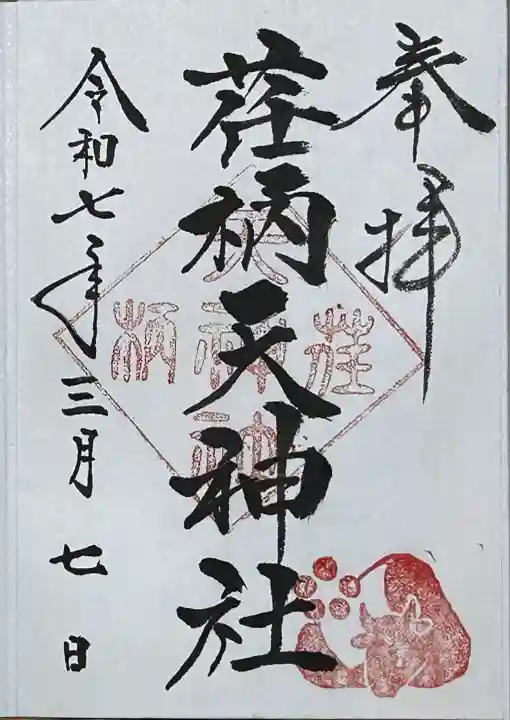 奉拝
荏柄天神社
令和七年三月七日
荏
天神社
柄